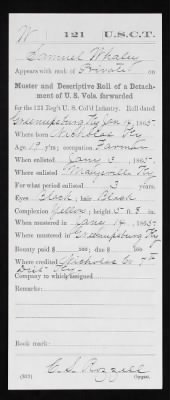 W | 121 | U.S.C.T.
Samuel Whaley
Appears with rank of Private on
Muster and Descriptive Roll of a Detach-
ment of U. S. Vols. forwarded
for the 121 Reg't U. S. Col'd Infantry. Roll dated
Greenupsburg Ky Jan 14, 1865.
Where born Nicholas Ky
Age 19 y'rs; occupation Farmer
When enlisted Jany 3, 1865.
Where enlisted Maysville Ky
For what period enlisted 3 years.
Eyes Black; hair Black
Complexion Yellow; height 5 ft. 8 in.
When mustered in Jany 14, 1865
Where mustered in Greenupsburg Ky
Bounty paid $ 100; due $ 100
Where credited Nicholas Co.
Dist Ky
Company to which assigned
Remarks:
Book mark:
Copyist.